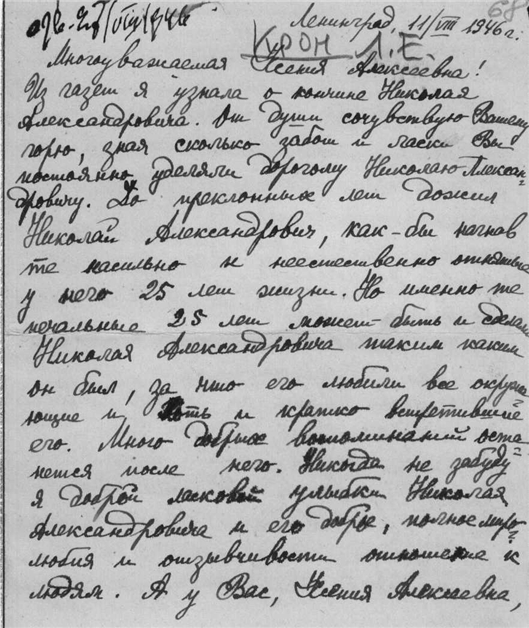 68
отв. 28/VIII 1946
Ленинград, 11/VIII 1946 г.
КРОН Л.Е.
Многоуважаемая Ксения Алексеевна!
Из газет я узнала о кончине Николая
Александровича. От души сочувствую Вашему
горю, зная сколько забот и ласки Вы
постоянно уделяли дорогому Николаю Алексан-
дровичу. До преклонных лет дожил
Николай Александрович, как-бы нагнав
те насильно и неестественно отнятые
у него 25 лет жизни. Но именно те
печальные 25 лет может быть и сделали
Николая Александровича таким каким
он был, за что его любили все окружа=
ющие и хоть и кратко встретившие
его. Много добрых воспоминаний оста=
нется после него. Никогда не забуду
я доброй ласковой улыбки Николая
Александровича и его доброе, полное миро=
любия и отзывчивости отношение к
людям. А у Вас, Ксения Алексеевна,